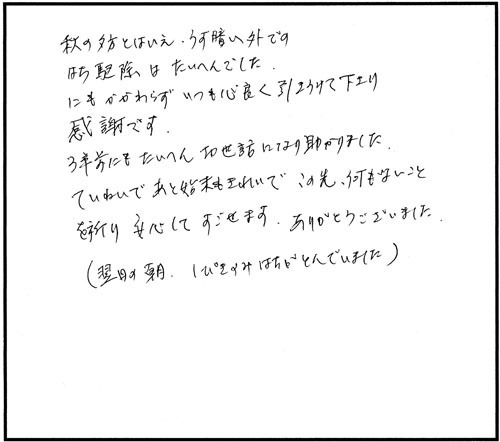 秋の夕方とはいえ、うす暗い外での
はち駆除は たいへんでした.
にもかかわらず いつも心良く引きうけて下さり
感謝です.
3年前にもたいへんお世話になり助かりました.
ていねいで あと始末もきれいで この先、何もないこと
を祈り 安心して すごせます. ありがとうございました.
(翌日の朝. 1ぴきのみはちがとんでいました)